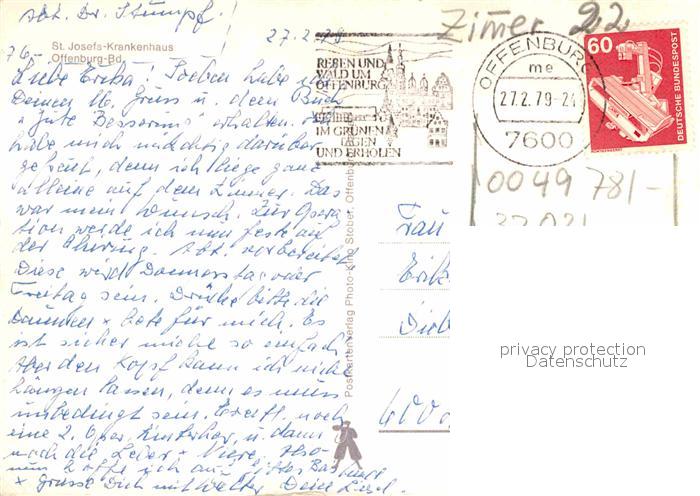 Abt. Dr. Stumpf.
27.2.79
76-
St. Josefs-Krankenhaus
Offenburg-Bd.
Liebe Erika! Soeben habe ich
Deinen lb. Gruss u. dem Buch
"Gute Besserung" erhalten.
habe mich mächtig darüber
gefreut, denn ich liege ganz
alleine auf dem Zimmer. Das
war mein Wunsch. Zur Opera-
tion werde ich nun feste auf
der Chirurg. Abt. vorbereitet
Diese wird Donnerstag oder
Freitag sein. Drücke bitte die
Daumen + bete für mich. Es
ist sicher nicht so einfach
Aber den Kopf kann ich nicht
hängen lassen, denn es muss
unbedingt sein. noch
eine 2. Oper. hinterher, u. dann
noch die Leber + Niere. Also
nun hoffe ich auf
+ grüsse Dich mit Walter Deine Liesel.
REBEN UND
WALD UM
OFFENBURG
IM GRÜNEN
TAGEN
UND ERHOLEN
Zimer 22
OFFENBURG
me
27.2.79-21
7600
60
DEUTSCHE BUNDESPOST
0049 781/-
Postkartenverlag Photo-King Stober, Offenburg
Frau
Erik
600
privacy protection
Datenschutz